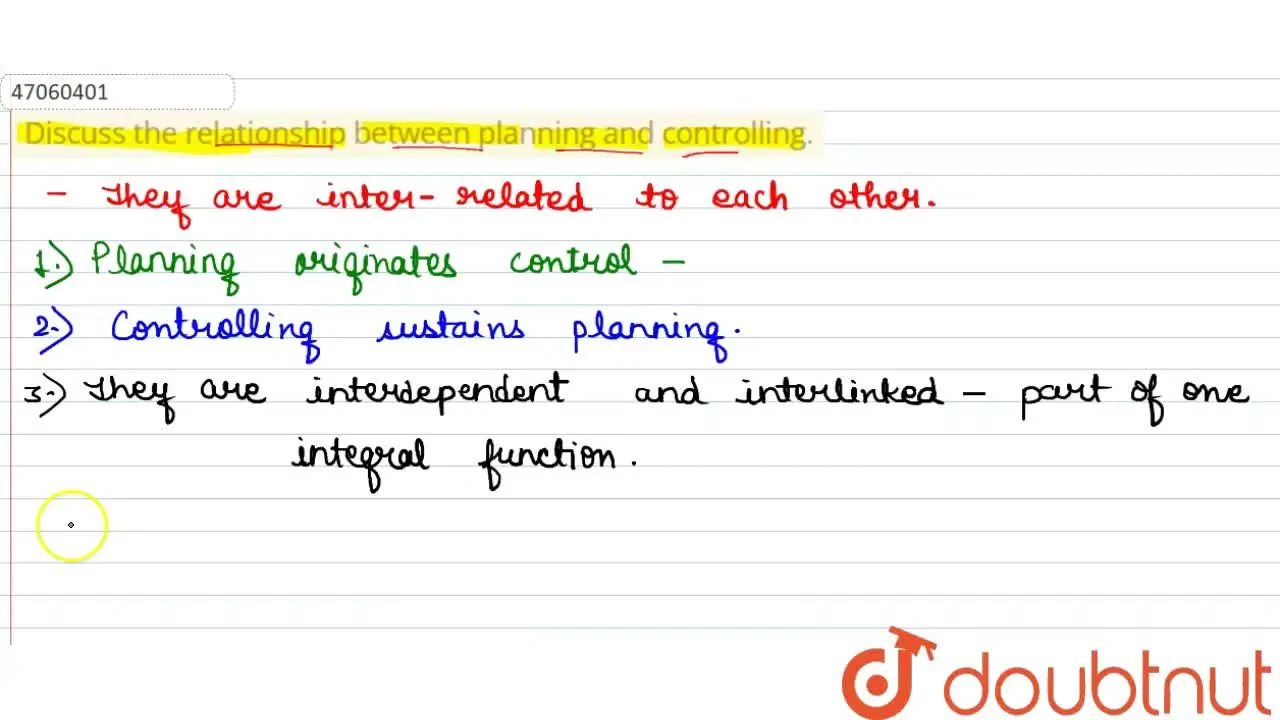 47060401
Discuss the relationship between planning and controlling.
- They are inter-related to each other.
1.) Planning originates control -
2.) Controlling sustains planning.
3.) They are interdependent and interlinked - part of one
integral function.
doubtnut